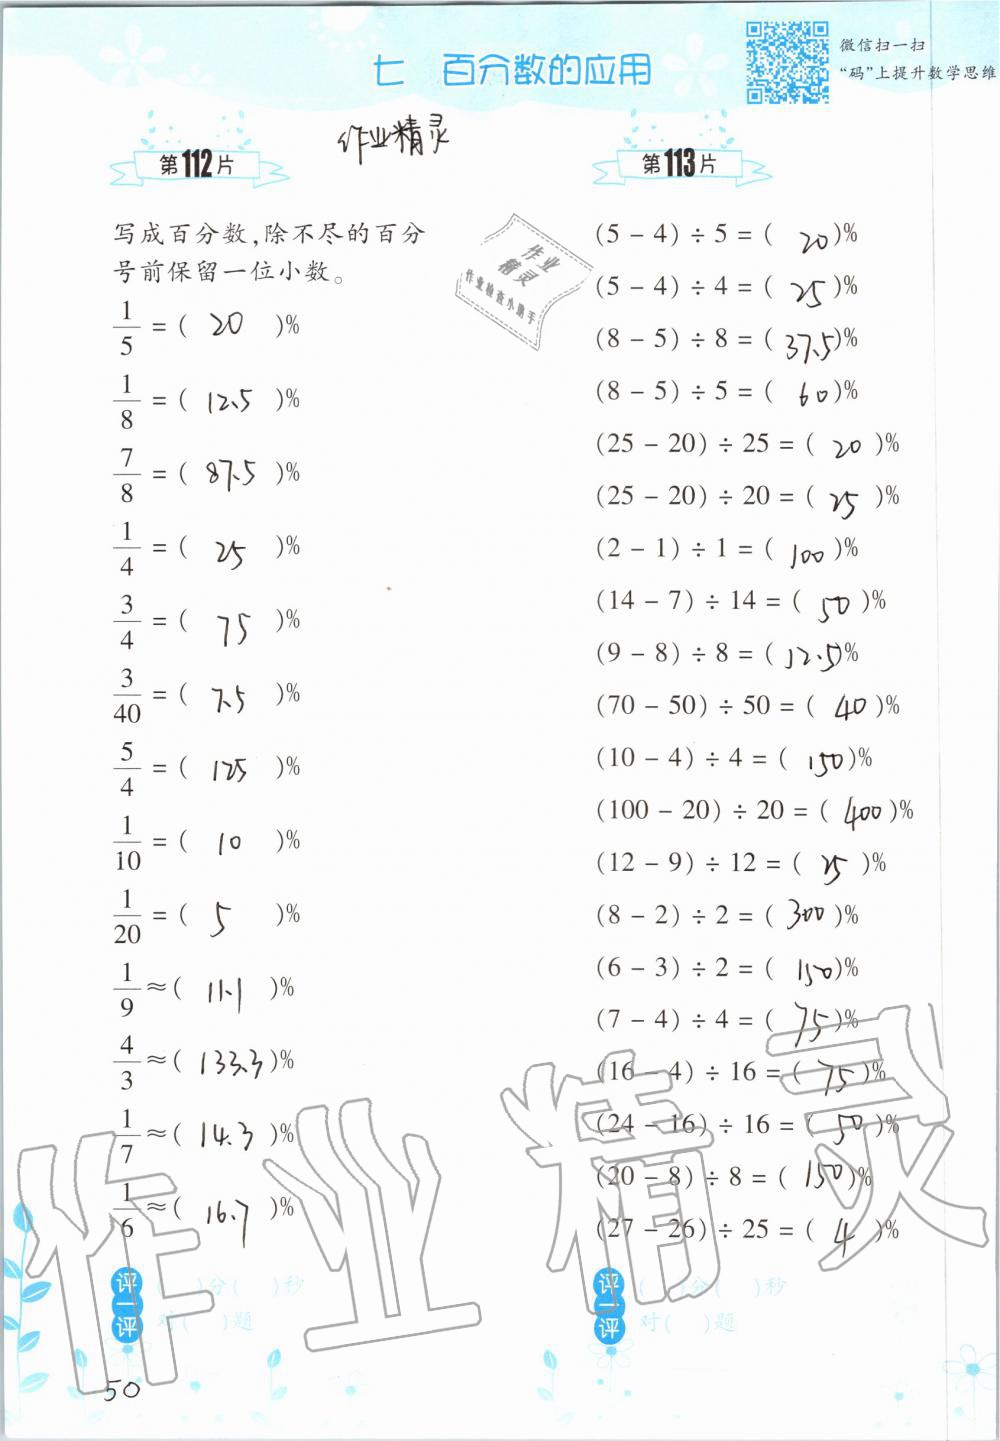 七 百分数的应用
微信扫一扫
“码”上提升数学思维
作业精灵
第112片
写成百分数,除不尽的百分
号前保留一位小数。
1/5 = ( 20 )%
1/8 = ( 12.5 )%
7/8 = ( 87.5 )%
1/4 = ( 25 )%
3/4 = ( 75 )%
3/40 = ( 7.5 )%
5/4 = ( 125 )%
1/10 = ( 10 )%
1/20 = ( 5 )%
1/9 ≈ ( 11.1 )%
4/3 ≈ ( 133.3 )%
1/7 ≈ ( 14.3 )%
1/6 ≈ ( 16.7 )%
评一评
( )分( )秒
对( )题
50
第113片
作业
精灵
作业检查小助手
(5 - 4) ÷ 5 = ( 20 )%
(5 - 4) ÷ 4 = ( 25 )%
(8 - 5) ÷ 8 = ( 37.5 )%
(8 - 5) ÷ 5 = ( 60 )%
(25 - 20) ÷ 25 = ( 20 )%
(25 - 20) ÷ 20 = ( 25 )%
(2 - 1) ÷ 1 = ( 100 )%
(14 - 7) ÷ 14 = ( 50 )%
(9 - 8) ÷ 8 = ( 12.5 )%
(70 - 50) ÷ 50 = ( 40 )%
(10 - 4) ÷ 4 = ( 150 )%
(100 - 20) ÷ 20 = ( 400 )%
(12 - 9) ÷ 12 = ( 25 )%
(8 - 2) ÷ 2 = ( 300 )%
(6 - 3) ÷ 2 = ( 150 )%
(7 - 4) ÷ 4 = ( 75 )%
(16 - 4) ÷ 16 = ( 75 )%
(24 - 16) ÷ 16 = ( 50 )%
(20 - 8) ÷ 8 = ( 150 )%
(27 - 26) ÷ 25 = ( 4 )%
评一评
( )分( )秒
对( )题
作业精灵